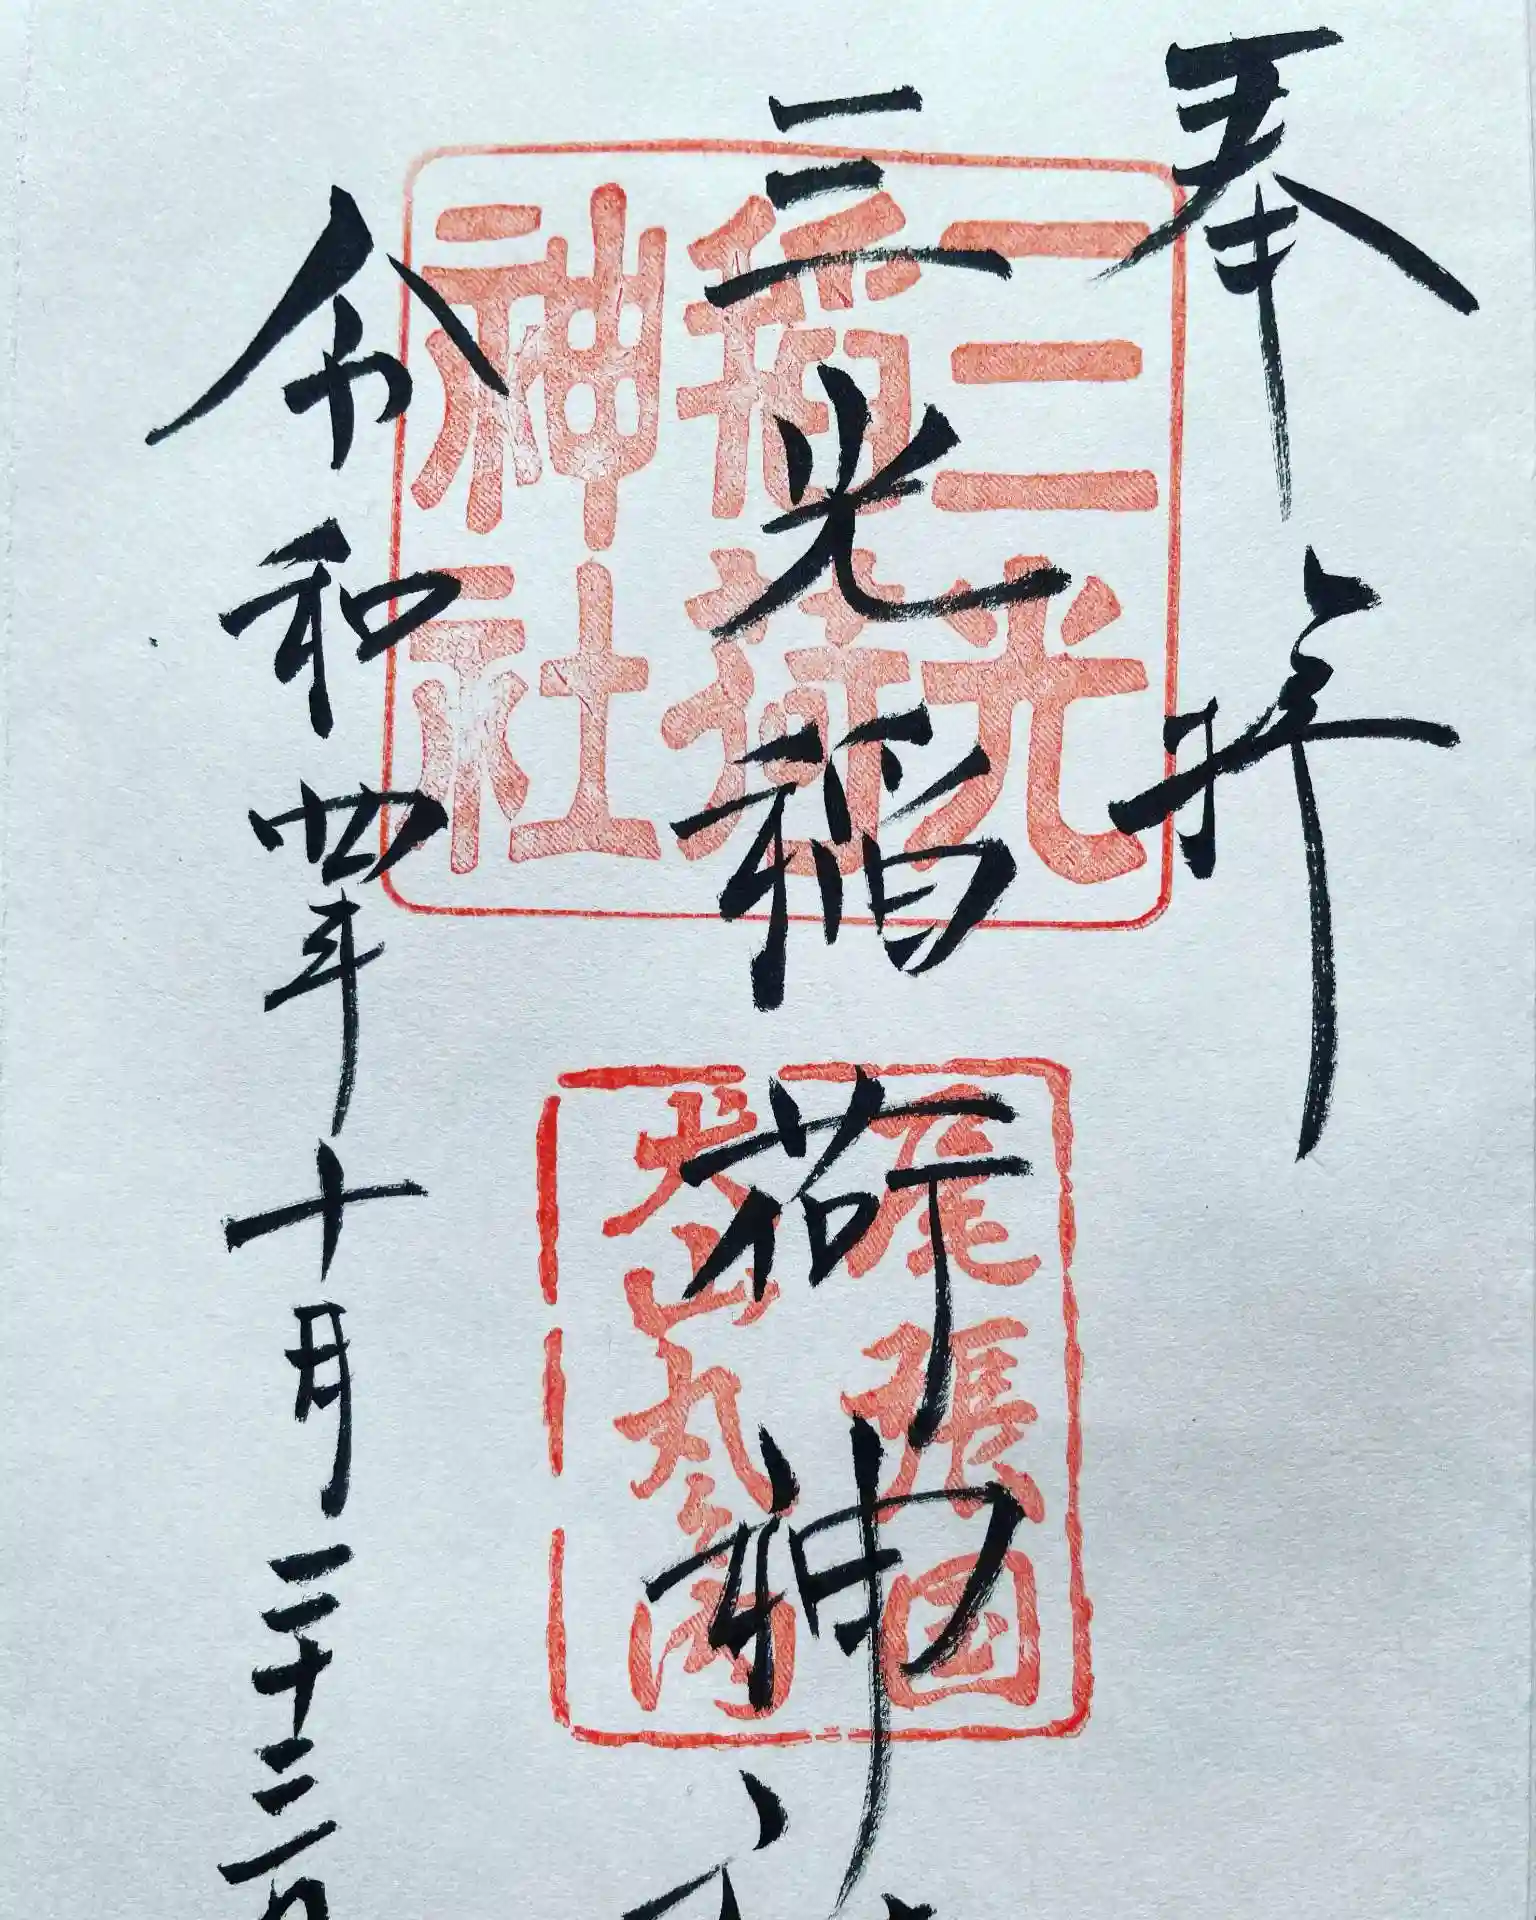 奉拝
三光稲荷神
令和四年十月二十三日
三光
稲荷
神社
尾張国
犬山丸之内